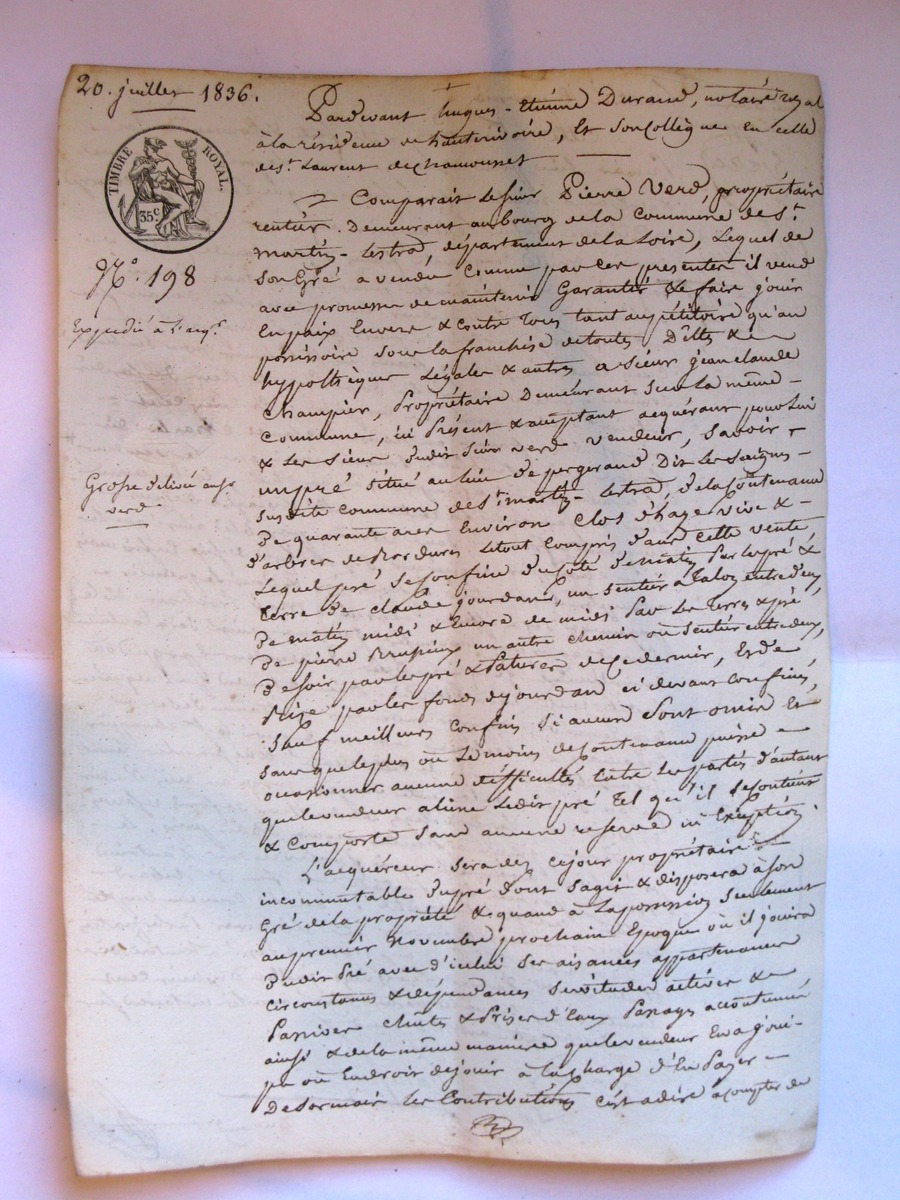 20. juillet 1836.
TIMBRE ROYAL.
35 c.
N.o 198
Expédié à l'acq.r
Grosse délivrée au s.r
verd
Pardevant hugues-Etienne Durand, notaire royal
à la résidence de hauterivoire, Et son Collègue En celle
de s.t Laurent de chamousset
Comparait le sieur Pierre Verd, propriétaire
rentier Demeurant au bourg de la Commune de S.t
martin-lestra, département de la Loire, Lequel de
Son Gré a vendu comme par ces présentes il vend
avec promesse de maintenir Garantir & faire jouir
En paix Envers & contre Tous tant au pétitoire qu'au
possessoire sous la franchise de toutes Dettes &
hypothèques Légales & autres a Sieur jean claude
champier, Propriétaire Demeurant sur la même
Commune, ici Présent & acceptant acquérant pour Lui
& Les Siens dudit Sieur verd vendeur, Savoir
un pré situé au lieu de pergerand Dit les Saignes
susdite commune de S.t martin-lestra, de la Contenance
De quarante ares Environ Clos d'haye vive &
d'arbres de Bordures Le tout Compris dans cette vente
Lequel pré Se Confine du côté de matin Par le pré &
Terre de claude jourdand, un Sentier à Talon entre deux
De matin midi & Encore de midi Par les Terre & pré
De pierre un autre chemin ou Sentier entre deux,
De Soir par le pré & Patures de Ce dernier, Et de
Bise par les fonds de jourdan ci devant confinés,
Sauf meilleurs confins Si aucuns Sont omis Et
Sans que le plus ou Le moins de Contenance puisse
occasionner aucune difficultés Entre les parties d'autant
que le vendeur aliène Ledit pré Tel qu'il Se Contient
& Comporte Sans aucune reserve ni Exception.
L'acquéreur Sera dès ce jour propriétaire
incommutable du pré dont S'agit & disposera à Son
Gré de la propriété & quand à La possession Seulement
au premier Novembre prochain Epoque où il jouira
Dudit Pré avec d'icelui Ses aisances appartenances
Circonstances & dépendances Servitudes actives &
Passives Chutes & Prises d'Eaux Passages accoutumés
ainsi & de la même manière que le vendeur En a joui
pu ou Eu droit de jouir à la Charge d'En Payer
Desormais les Contributions c'est a dire a compter de